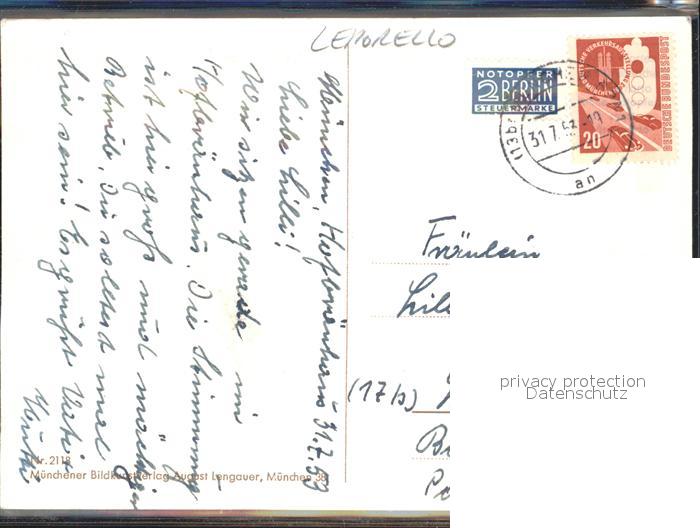 LEPORELLO
München, Hofbräuhaus 31.7.53
Liebe Lilli!
Wir sitzen gerade im
Hofbräuhaus. Die Stimmung
ist hier groß und mächtiger
Betrieb. Du solltest mal
hier sein! Es grüßt Vati +
Nr. 2118
Münchener Bildkunstverlag August Lengauer, München 38
NOTOPFER
2 BERLIN
STEUERMARKE
DEUTSCHE VERKEHRSAUSSTELLUNG
MÜNCHEN
20
DEUTSCHE BUNDESPOST
(13b)
31.7.53
an
Fräulein
(17b)
privacy protection
Datenschutz